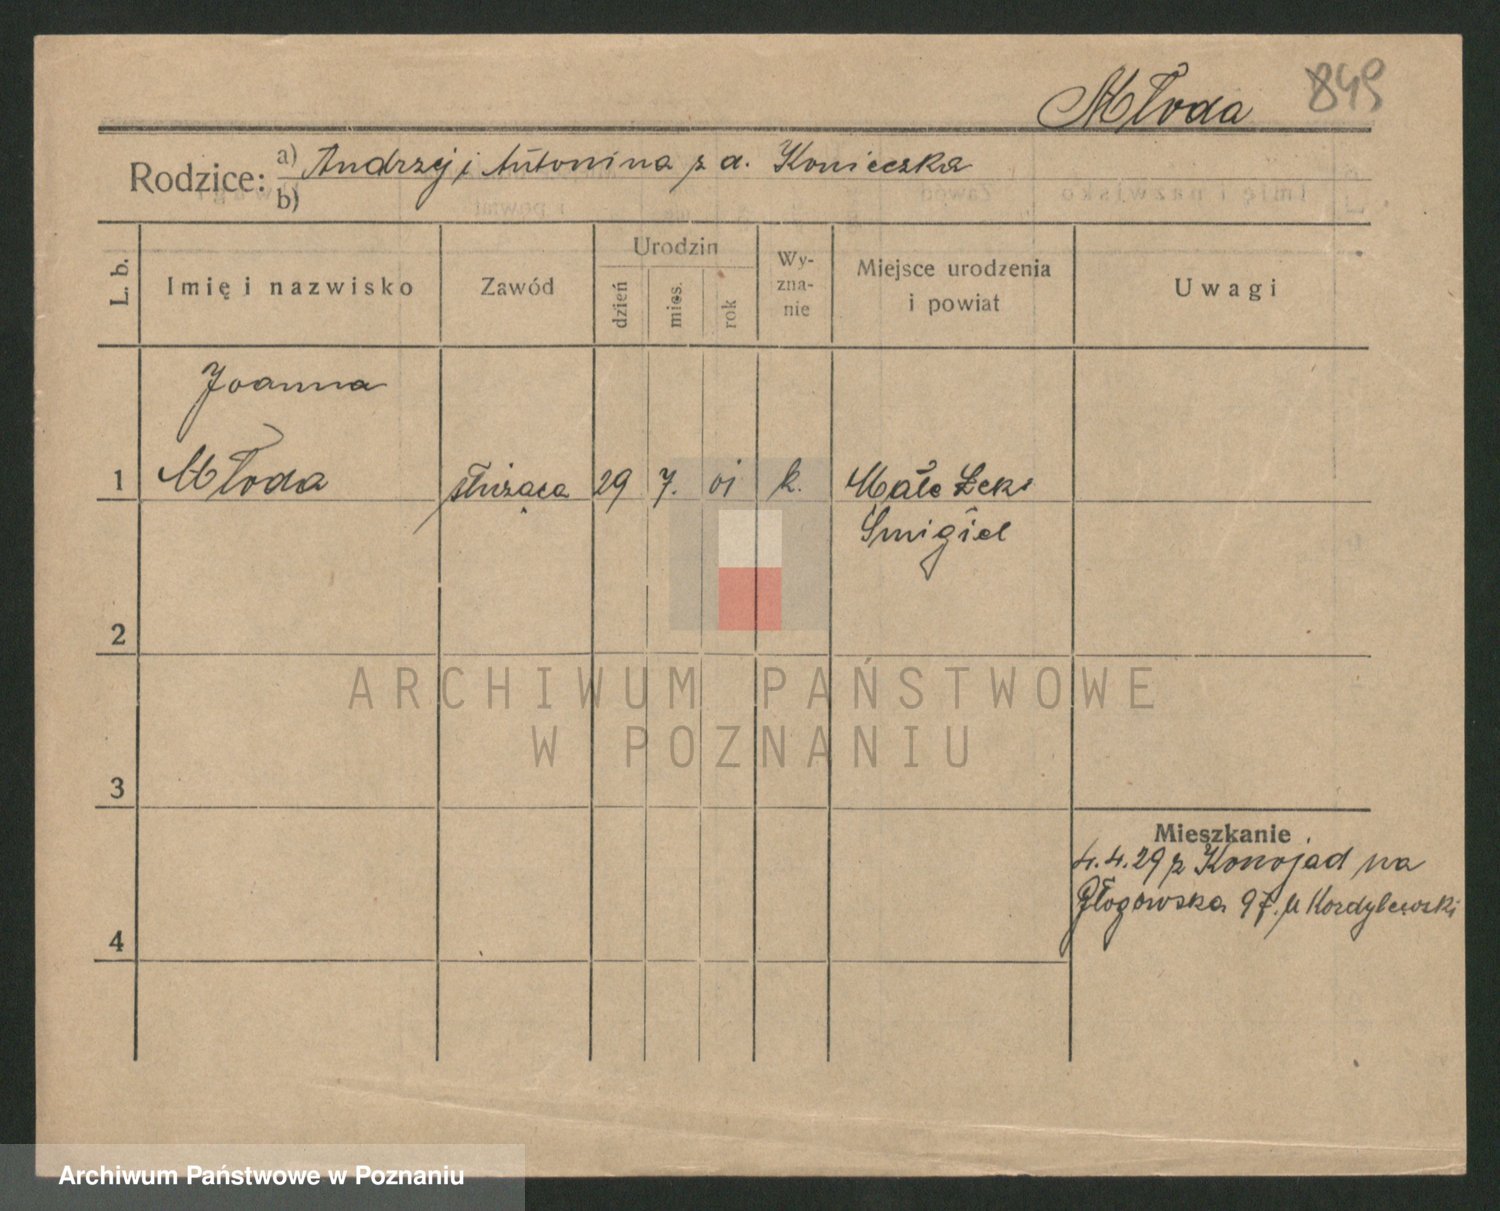 Młoda 849
Rodzice: a) Andrzej i Antonina z d. Konieczka
b)
L. b. Imię i nazwisko Zawód Urodzin dzień mies. rok Wy-zna-nie Miejsce urodzenia i powiat Uwagi
Joanna
1 Młoda służąca 29 7. 01 k. Małe Łęki
Śmigiel
2
ARCHIWUM PAŃSTWOWE
W POZNANIU
3
Mieszkanie
4.4.29 z Konojad na
Głogowska 97. u Kordylewski
4
Archiwum Państwowe w Poznaniu